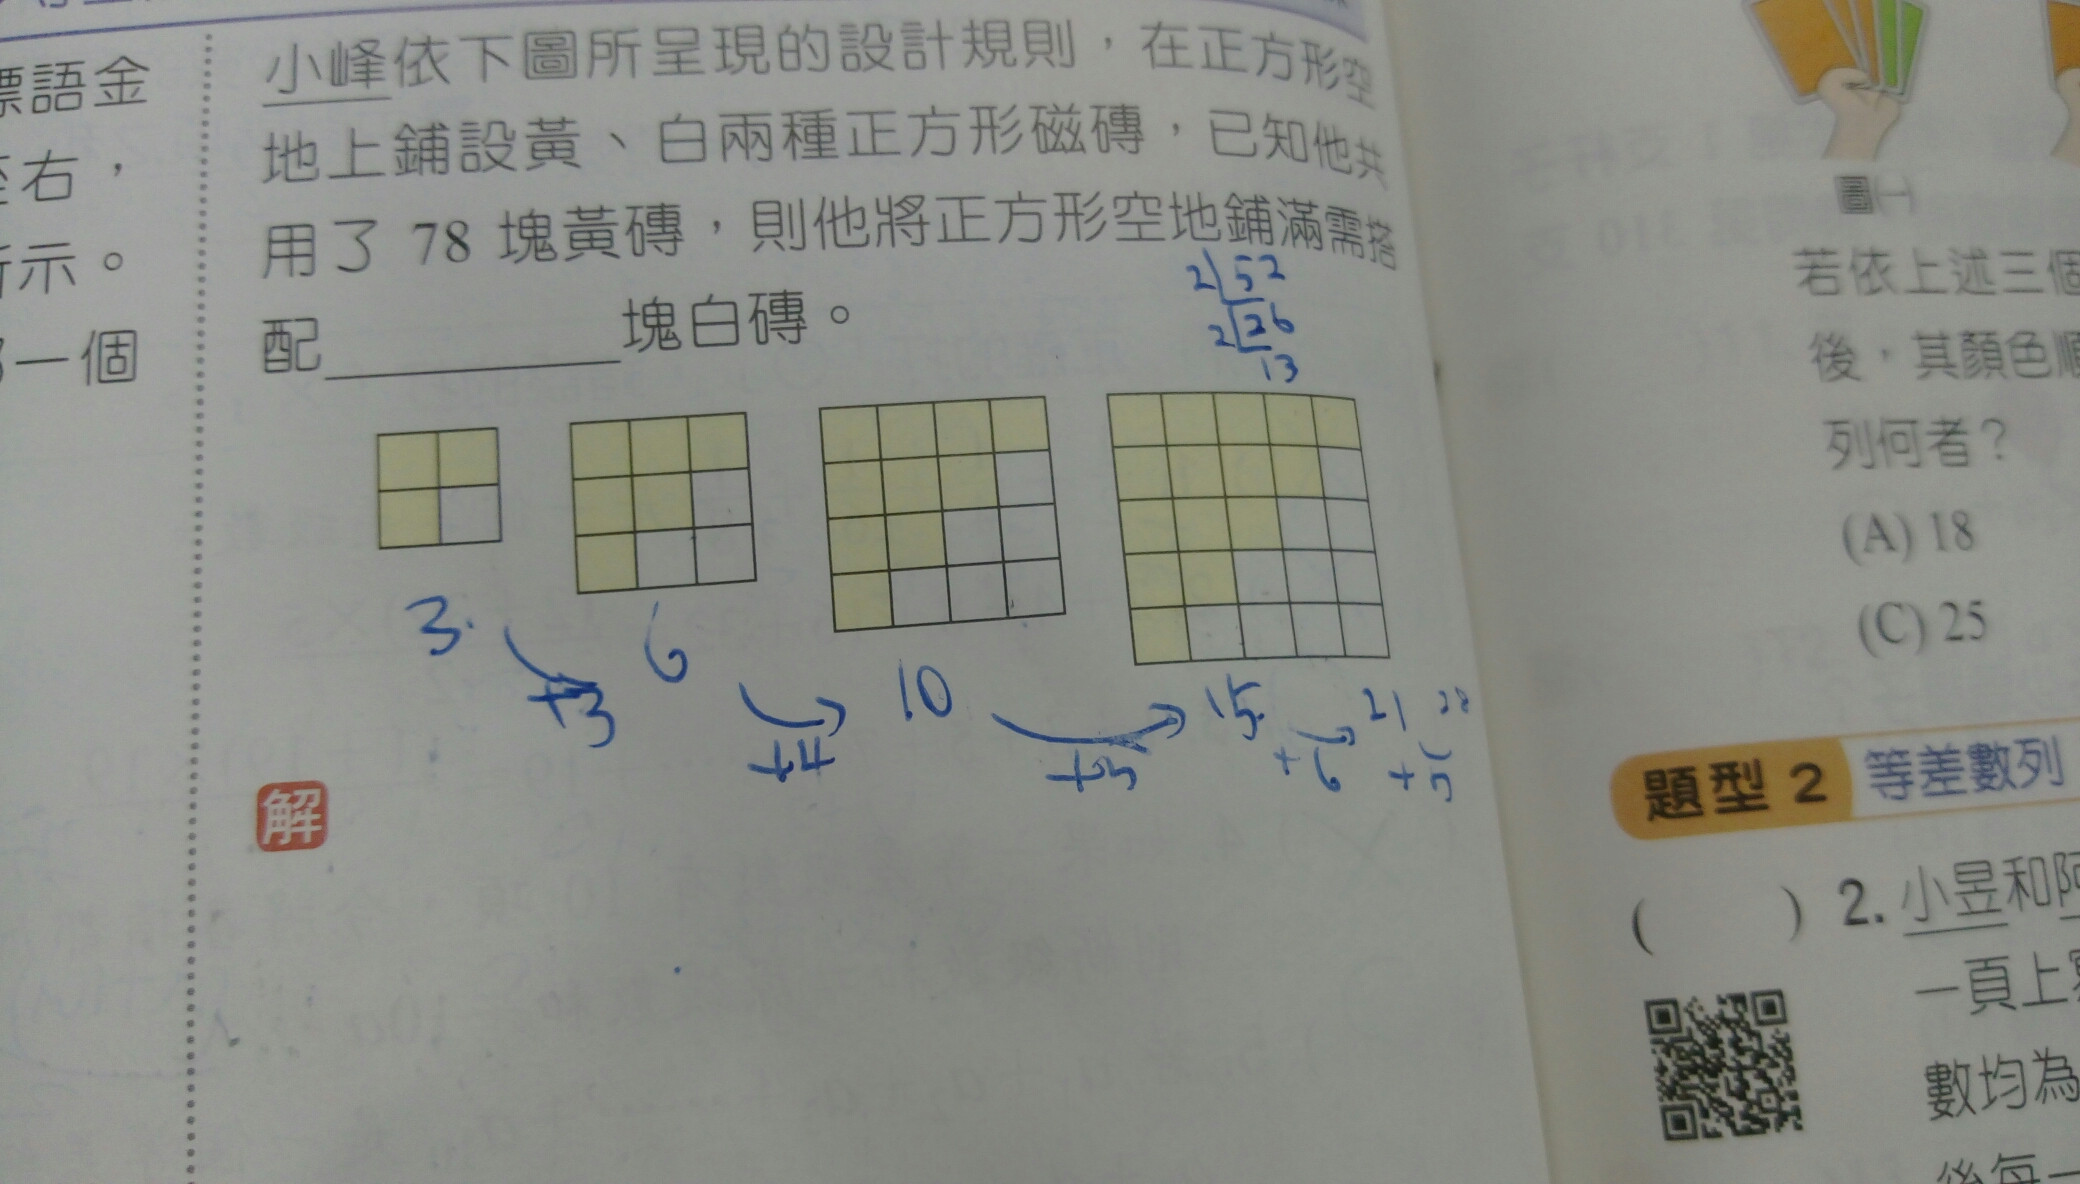 標語金
座右，
所示。
一個
小峰依下圖所呈現的設計規則，在正方形空
地上鋪設黃、白兩種正方形磁磚，已知他共
用了 78 塊黃磚，則他將正方形空地鋪滿需搭
配 塊白磚。
2 52
2 26
13
3 6 10 15 21 28
+3 +4 +5 +6 +7
解
圖(一)
若依上述三個
後，其顏色順
列何者？
(A) 18
(C) 25
題型 2 等差數列
( ) 2. 小昱和阿
一頁上
數均為
後每一